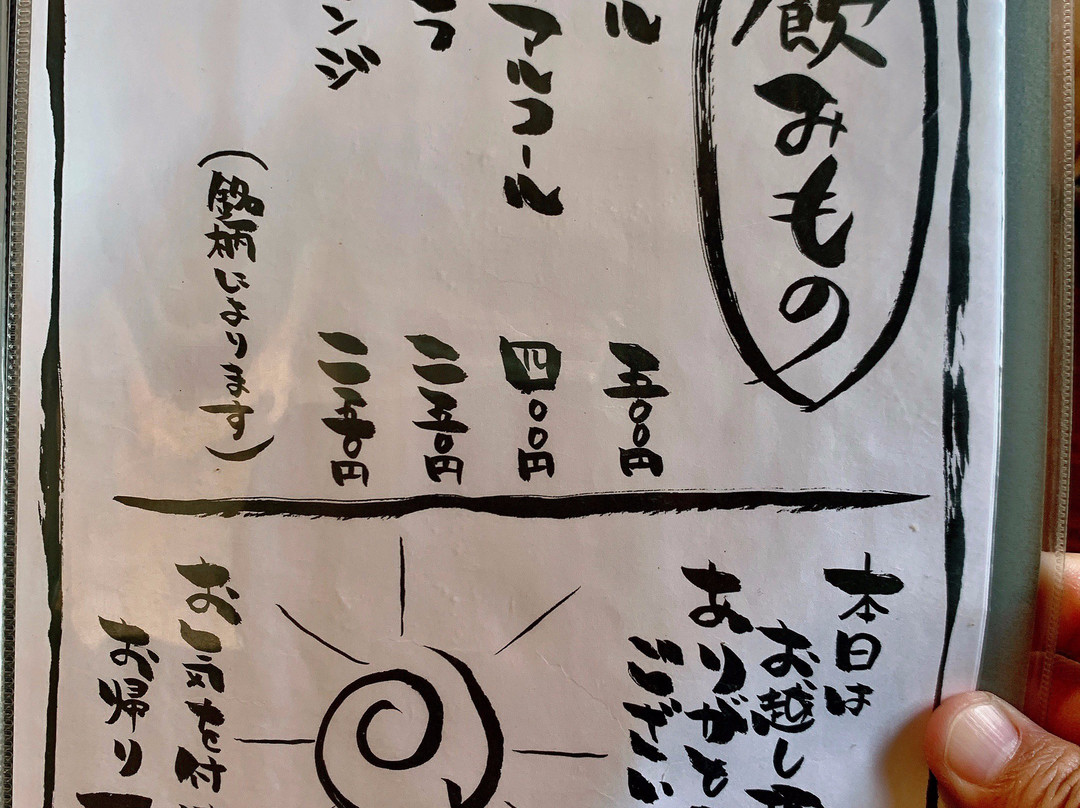 飲みもの
ル 五〇〇円
アルコール 四〇〇円
ラ 二五〇円
ンジ 二五〇円
(銘柄によります)
本日は
お越し
ありがと
ござい
お気を付
お帰り